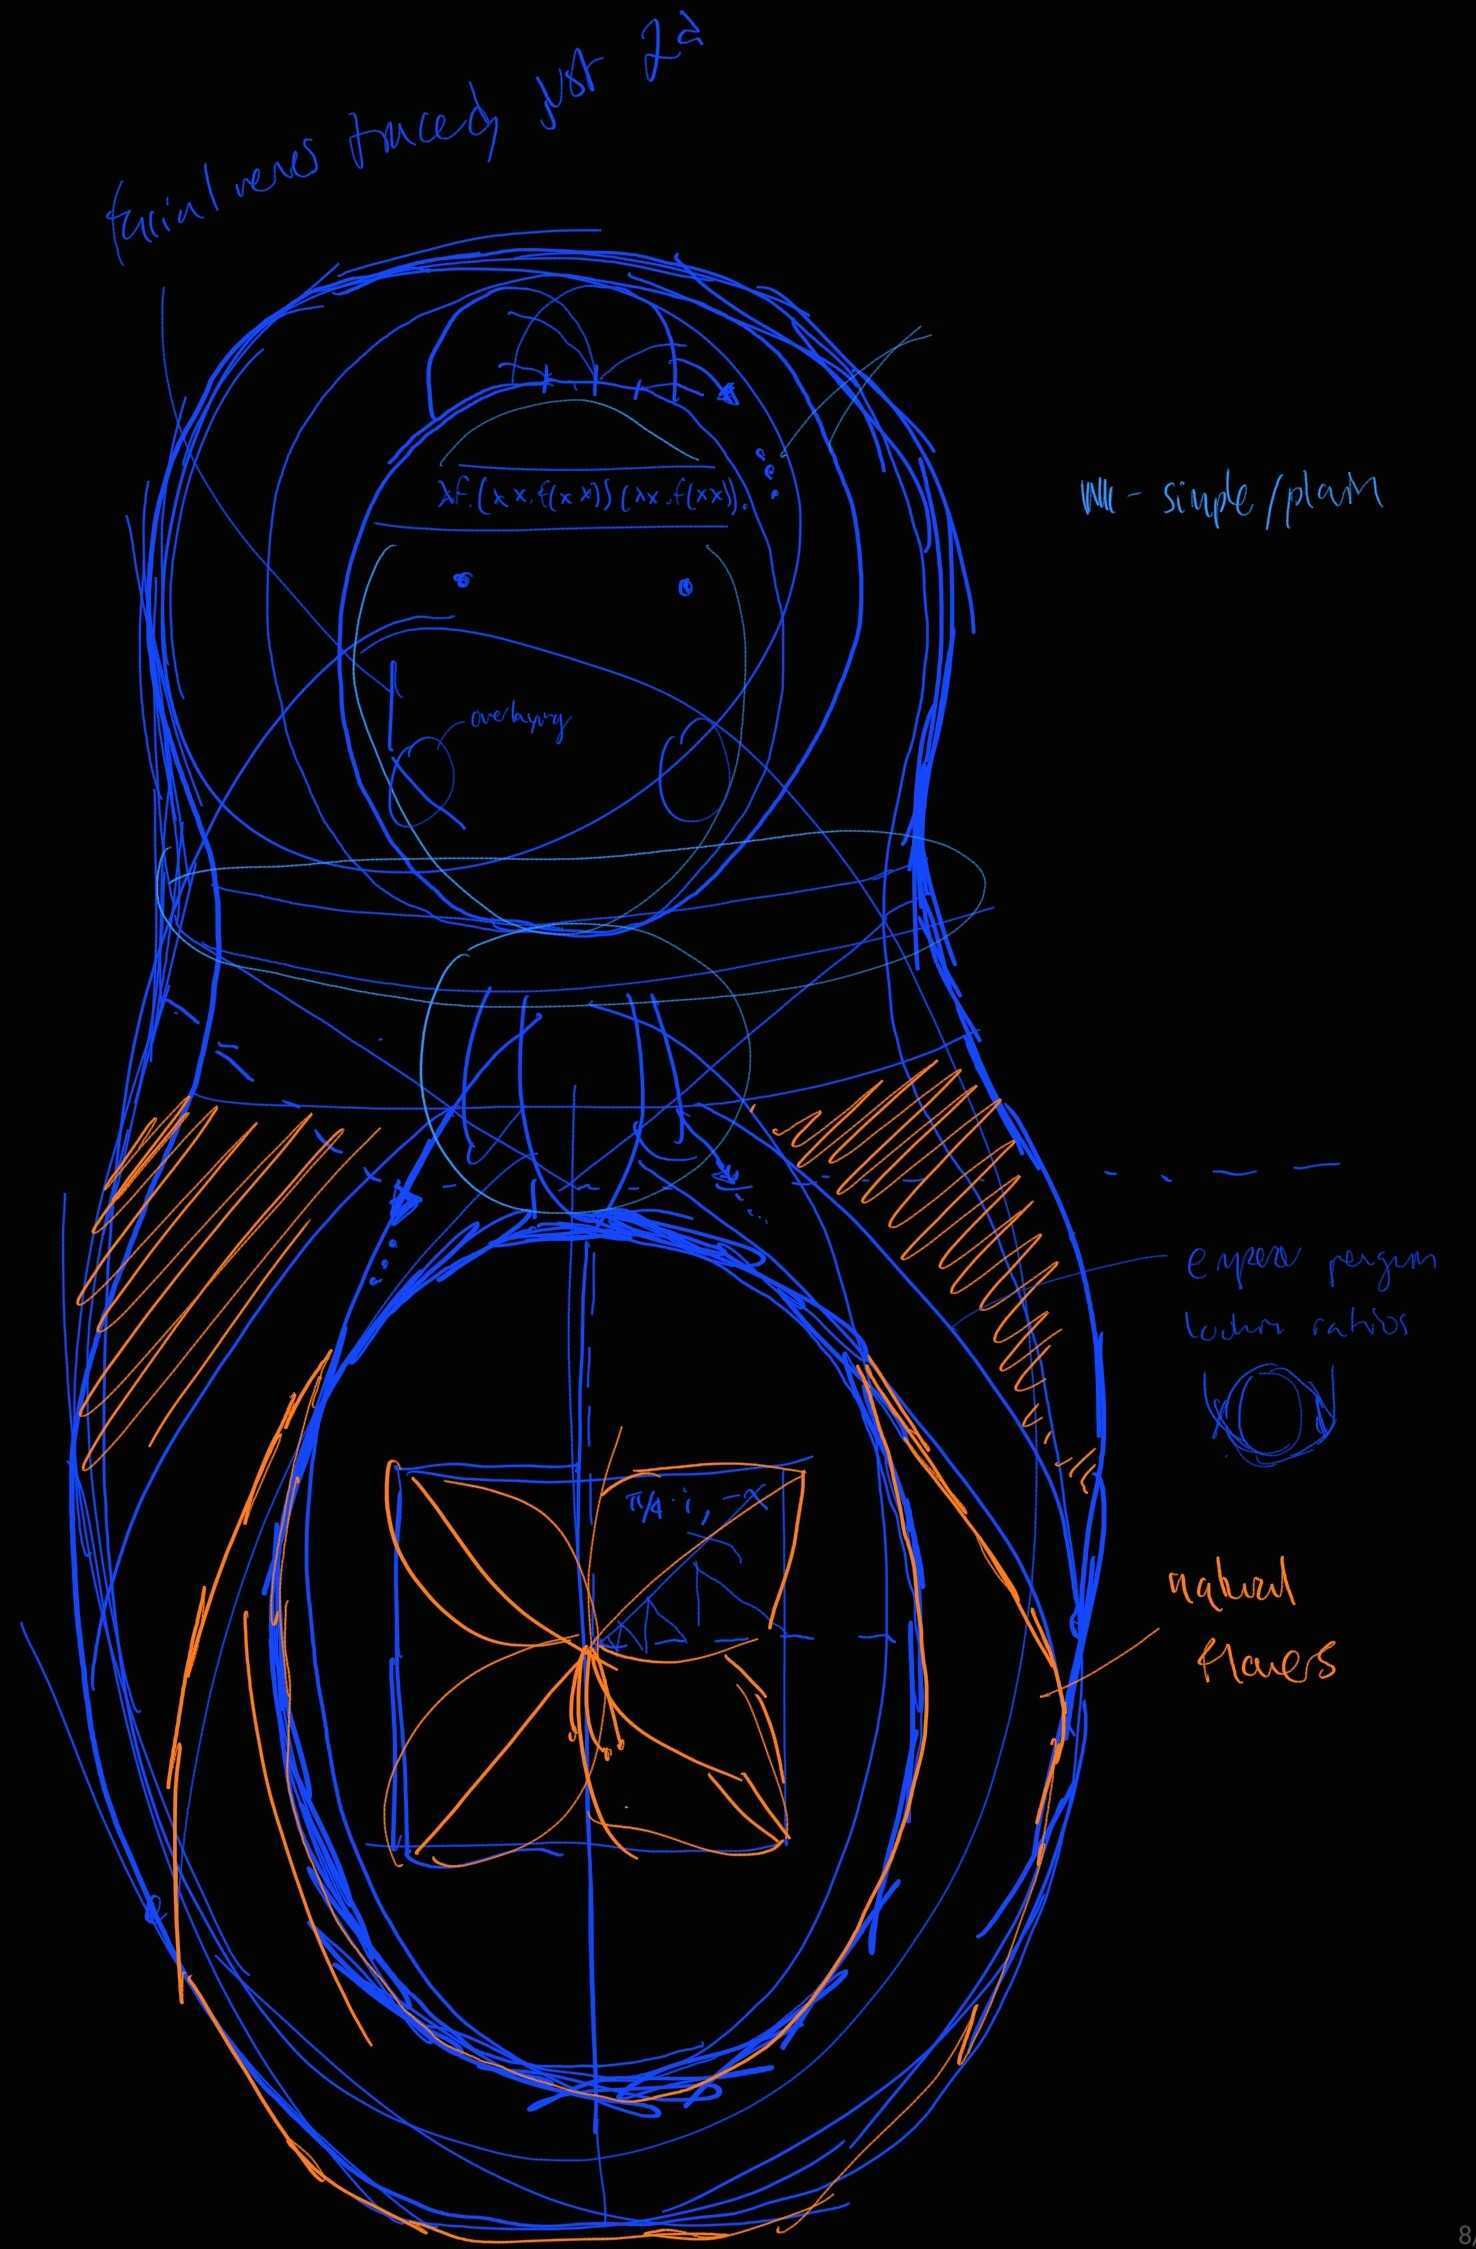 facial nerves traced, just 2d
λf.(λx.f(xx))(λx.f(xx)).
- simple/plain
overlaying
emperor penguin
ratios
π/4·i, -x
natural
flowers
8/